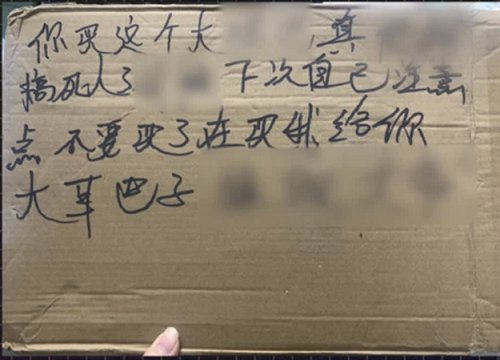 你买这个大 真
搞死人了 下次自己注意
点 不要买了在买我给你
大 巴子